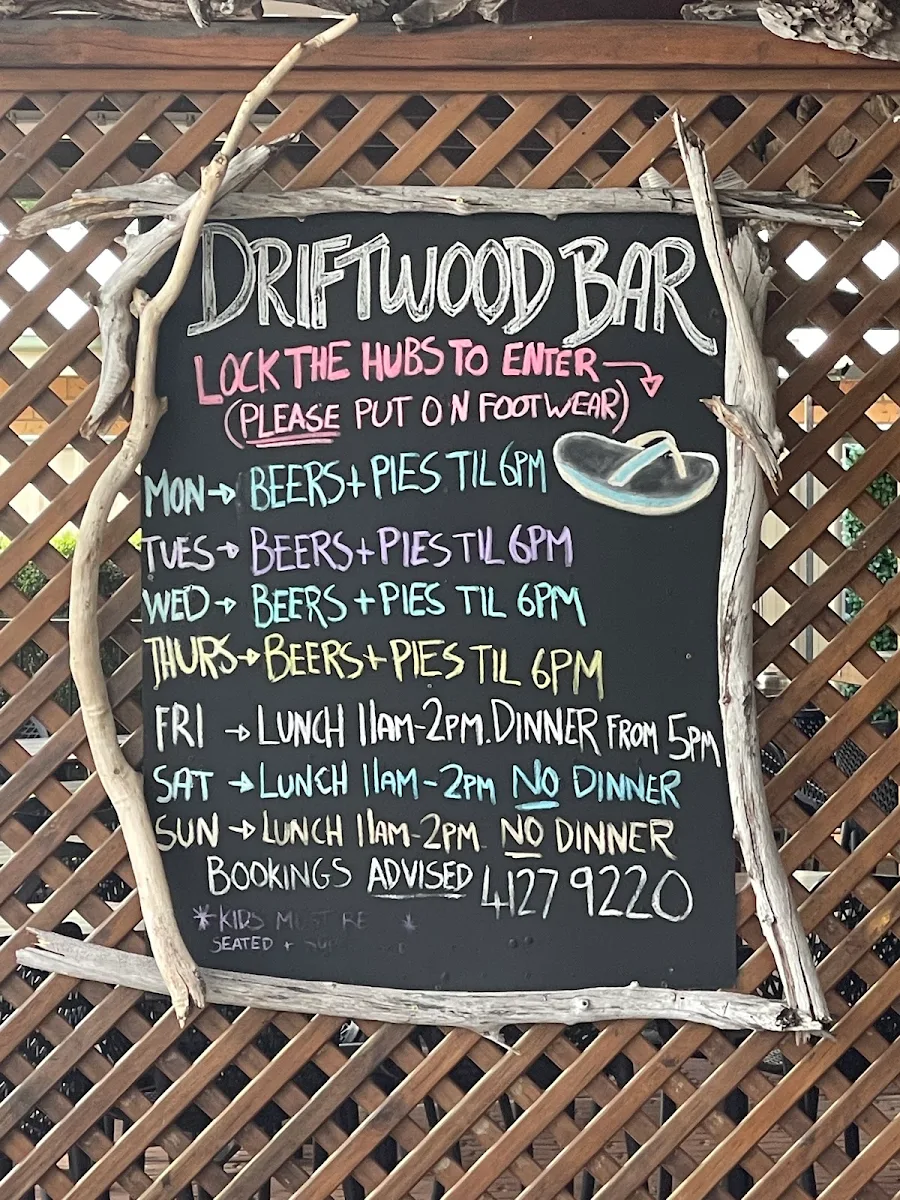 DRIFTWOOD BAR
LOCK THE HUBS TO ENTER
(PLEASE PUT ON FOOTWEAR)
MON → BEERS + PIES TIL 6PM
TUES → BEERS + PIES TIL 6PM
WED → BEERS + PIES TIL 6PM
THURS → BEERS + PIES TIL 6PM
FRI → LUNCH 11AM-2PM. DINNER FROM 5PM
SAT → LUNCH 11AM-2PM NO DINNER
SUN → LUNCH 11AM-2PM NO DINNER
BOOKINGS ADVISED 4127 9220
*KIDS MUST BE *
SEATED +